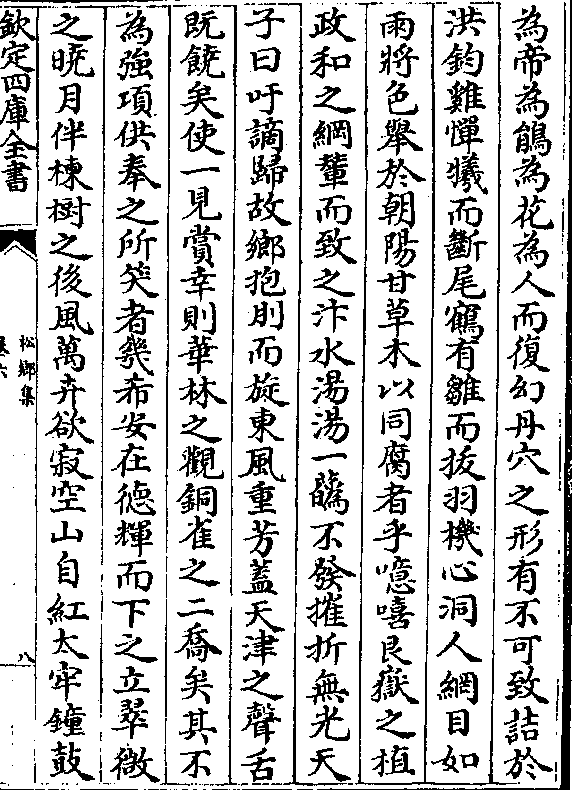 為帝為鵃為花為人而復幻丹穴之形有不可致詰於
洪鈞雞憚犧而斷尾鶴有雛而拔羽機心洞人網目如
雨將色舉於朝陽甘草木以同腐者乎噫嘻艮嶽之植
政和之綱輦而致之汴水湯湯一觴不發摧折無光天
子曰吁謫歸故鄉抱刖而旋東風重芳蓋天津之聲舌
既饒矣使一見賞幸則華林之觀銅雀之二喬矣其不
為強項供奉之所笑者幾希安在德輝而下之立翠微
之曉月伴楝樹之後風萬卉欲寂空山自紅太牢鐘鼓
欽定四庫全書
松鄉集
卷六
八